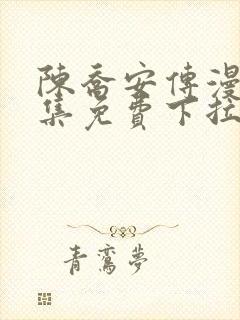 陳喬安傳漫
集免費下拉
青鸞夢